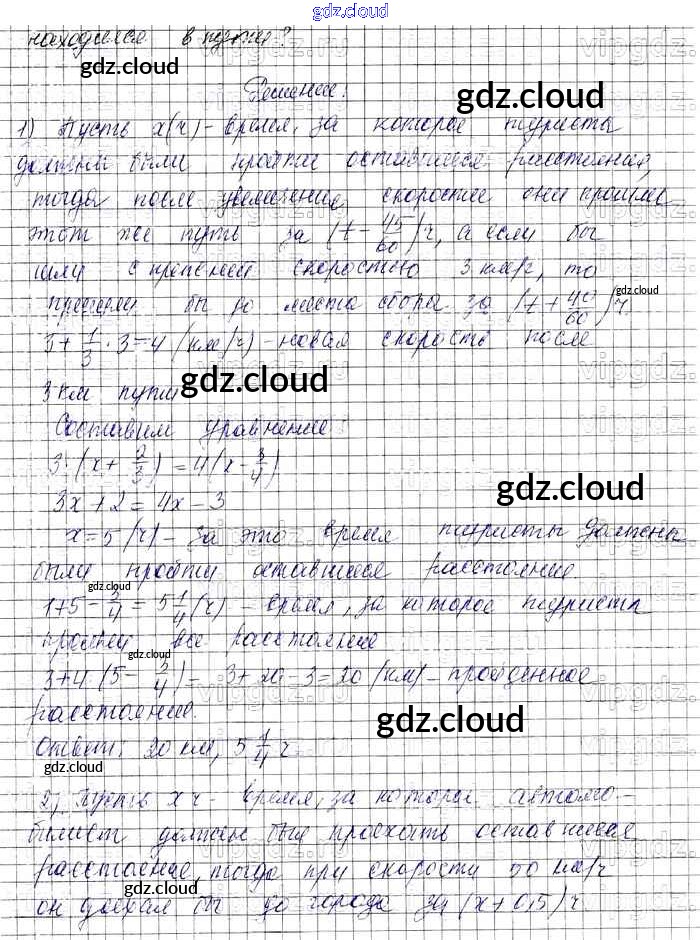 gdz.cloud
находился в пути?
Решение:
1) Пусть x(ч) - время, за которое туристы
должны были пройти оставшееся расстояние,
тогда после увеличения скорости они прошли
этот же путь за (t - 45/60) ч, а если бы
шли с прежней скоростью 3 км/ч, то
пришли бы до места сбора за (t + 40/60) ч
3 + 1/3 · 3 = 4 (км/ч) - новая скорость после
3 км пути
Составим уравнение:
3 · (x + 2/3) = 4(x - 3/4)
3x + 2 = 4x - 3
x = 5 (ч) - за это время туристы должны
были пройти оставшееся расстояние
1 + 5 - 3/4 = 5 1/4 (ч) - время, за которое туристы
прошли все расстояние
3 + 4 (5 - 3/4) = 3 + 20 - 3 = 20 (км) - пройденное
расстояние.
Ответ: 20 км, 5 1/4 ч.
2) Пусть x ч - время, за которое автомо-
билист должен был проехать оставшееся
расстояние, тогда при скорости 50 км/ч
он доехал бы до города за (x + 0,5) ч
gdz.cloud
gdz.cloud
gdz.cloud
gdz.cloud
gdz.cloud
gdz.cloud
gdz.cloud
gdz.cloud
gdz.cloud
gdz.cloud
gdz.cloud